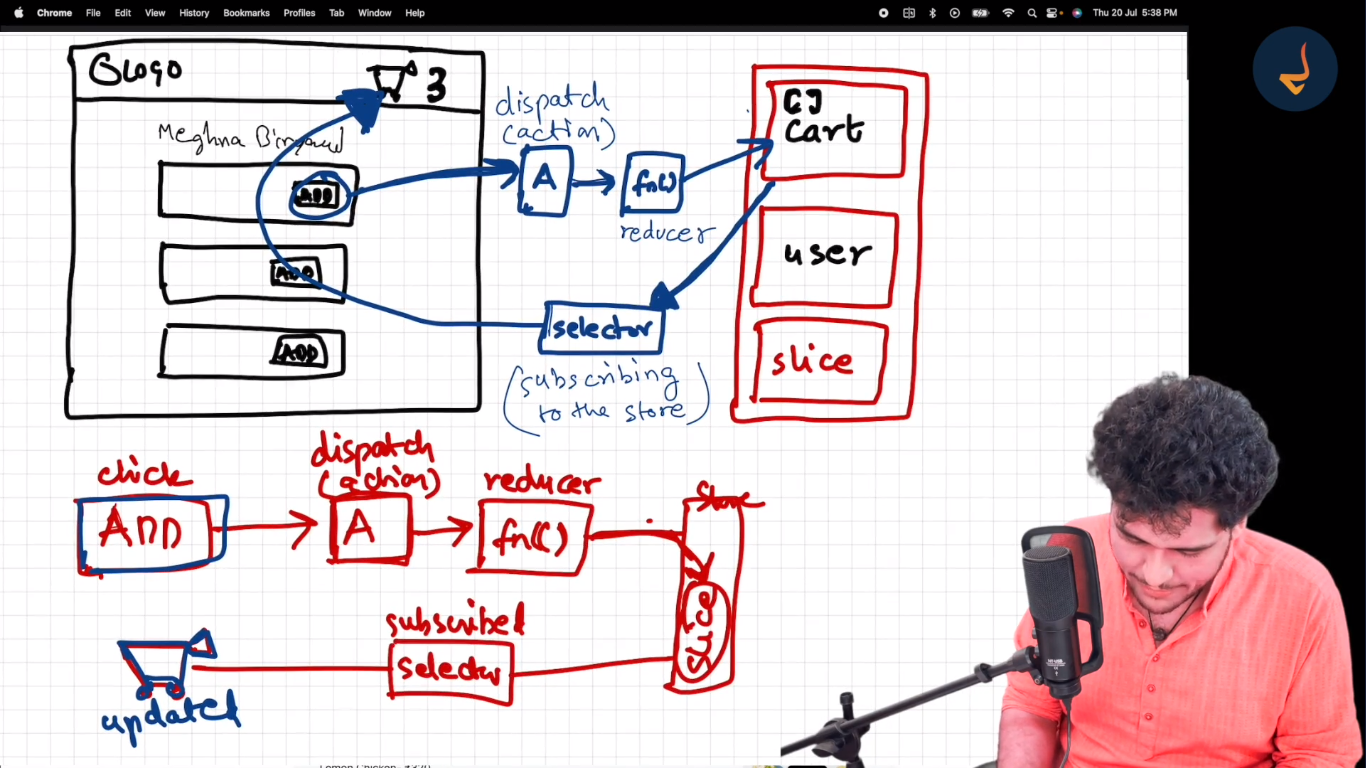 Chrome File Edit View History Bookmarks Profiles Tab Window Help
Thu 20 Jul 5:38 PM
LOGO
3
Meghna
ADD
ADD
ADD
dispatch
(action)
A
fn()
reducer
selector
(subscribing
to the store)
cart
user
slice
click
ADD
dispatch
(action)
A
reducer
fn()
store
slice
subscribed
selector
updated